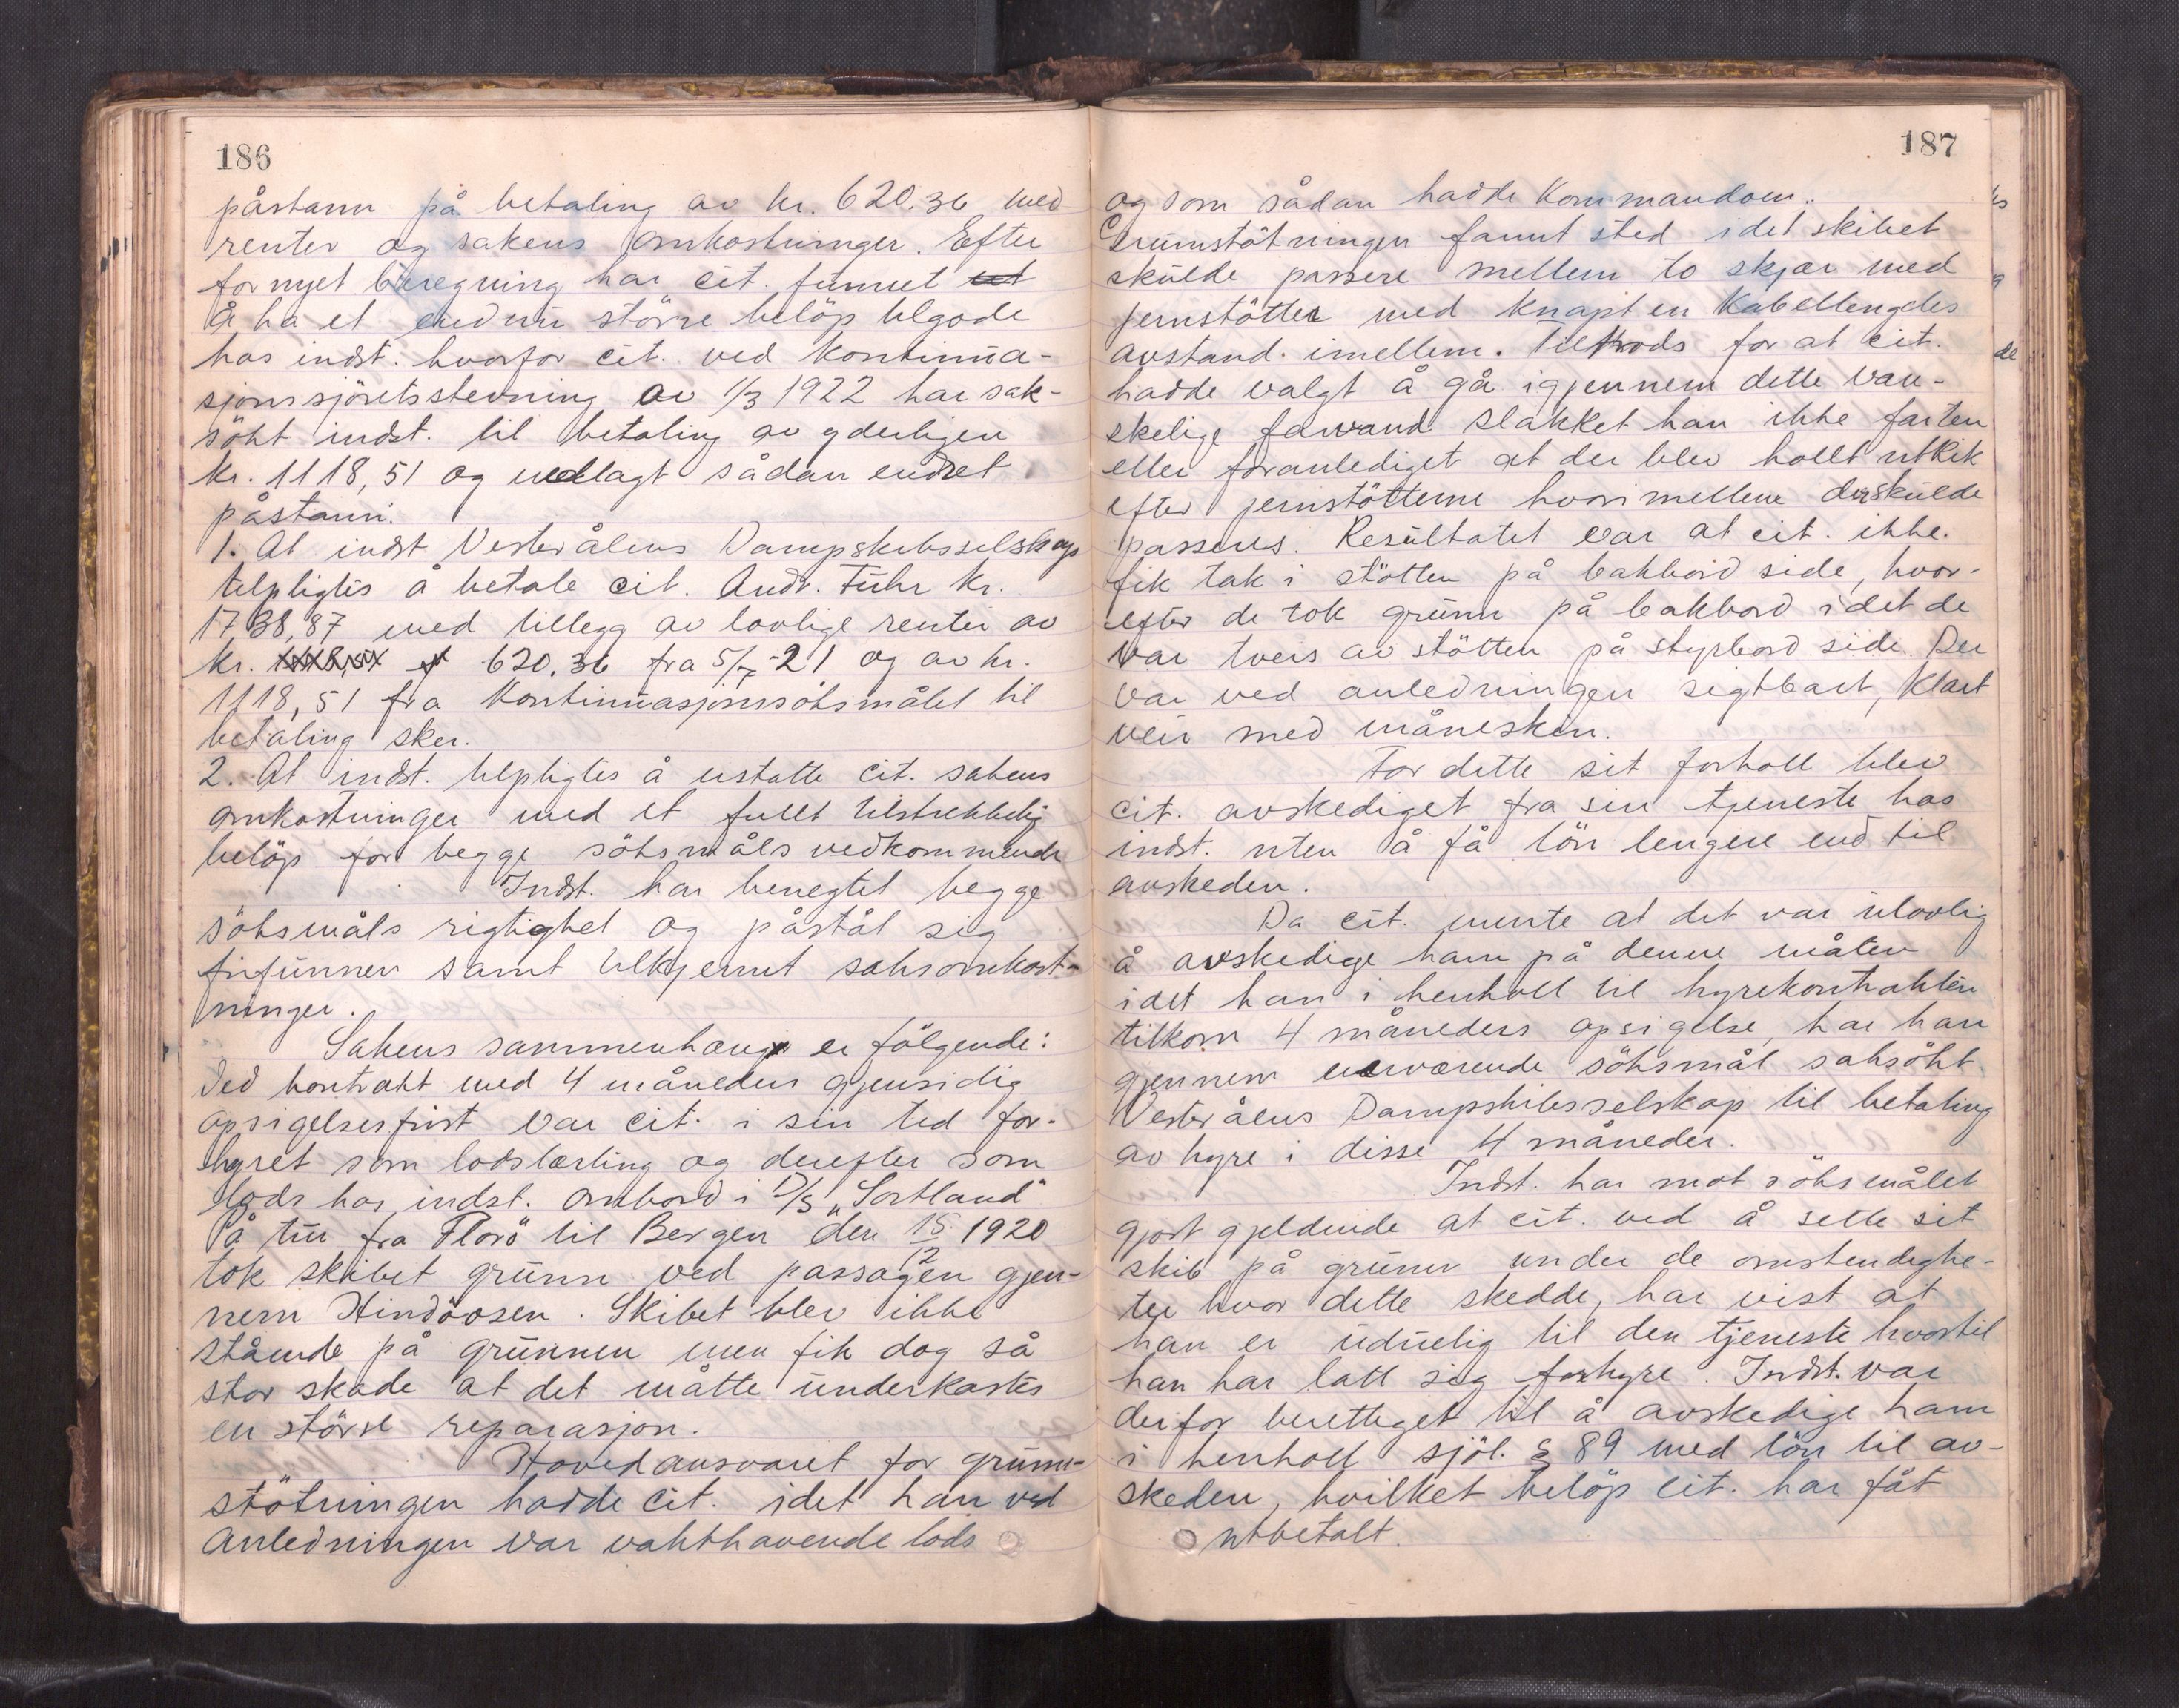 186
påstann på betaling av kr. 620.36 med
renter og sakens omkostninger. Efter
fornyet beregning har cit. funnet
å ha et endnu större belöp tilgode
hos indst. hvorfor cit. ved kontinua-
sjonssjöretsstevning av 1/3 1922 har sak-
sökt indst. til betaling av yderligen
kr. 1118,51 og nedlagt sådan endret
påstann:
1. At indst Vesterålens Dampskibsselskap
tilpligtes å betale cit. Andr. Führ kr.
1738,87 med tillegg av lovlige renter av
kr. 620.36 fra 5/7-21 og av kr.
1118,51 fra kontinuasjonssöksmålet til
betaling sker.
2. At indst. tilpligtes å erstatte cit. sakens
omkostninger med et fullt tilstrekkelig
belöp for begge söksmåls vedkommende
Indst. har benegtet begge
söksmåls rigtighet og påstål sig
frifunnen samt tilkjennt saksomkost-
ninger.
Sakens sammenhang er fölgende:
Ved kontrakt med 4 måneders gjensidig
opsigelsesfrist var cit. i sin tid for-
hyret som lodslærling og derefter som
lods hos indst. ombord i D/S "Sortland"
På tur fra Florö til Bergen den 15/12 1920
tok skibet grunn ved passagen gjen-
nem Hindöosen. Skibet blev ikke
stående på grunnen men fik dog så
stor skade at det måtte underkastes
en större reparasjon.
Hovedansvaret for grunn-
stötningen hadde cit. idet han ved
anledningen var vakthavende lods
187
og som sådan hadde kommandoen.
Grunnstötningen fannt sted idet skibet
skulde passere mellem to skjær med
jernstötter med knapt en kabellengdes
avstand. imellem. Tiltrods for at cit.
hadde valgt å gå igjennem dette van-
skelige farvand slakket han ikke farten
eller foranlediget at der blev hollt utkik
efter jernstötterne hvorimellem der skulde
passeres. Resultatet var at cit. ikke.
fik tak i stötten på bakbord side, hvor-
efter de tok grunn på bakbord idet de
var tvers av stötten på styrbord side. Der
var ved anledningen sigtbart, klart
veir med måneskin.
For dette sit forholl blev
cit. avskediget fra sin tjeneste hos
indst. uten å få lön lengere end til
avskeden.
Da cit. mente at det var ulovlig
å avskedige ham på denne måten
idet han i henholl til hyrekontrakten
tilkom 4 måneders opsigelse, har han
gjennem nærværende söksmål saksökt
Vesterålens Dampskibsselskap til betaling
av hyre i disse 4 måneder.
Indst. har mot söksmålet
gjort gjeldende at cit. ved å sette sit
skib på grunn under de omstendighe-
ter hvor dette skedde, har vist at
han er uduelig til den tjeneste hvortil
han har latt sig forhyre. Indst. var
derfor berettiget til å avskedige ham
i henholl sjöl. § 89 med lön til av-
skeden, hvilket belöp cit. har fåt
utbetalt.